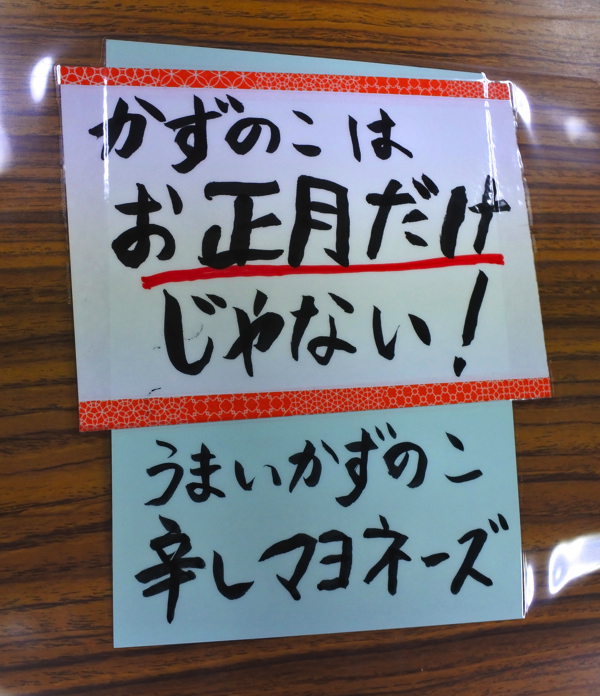 かずのこは
お正月だけ
じゃない!
うまいかずのこ
辛しマヨネーズ